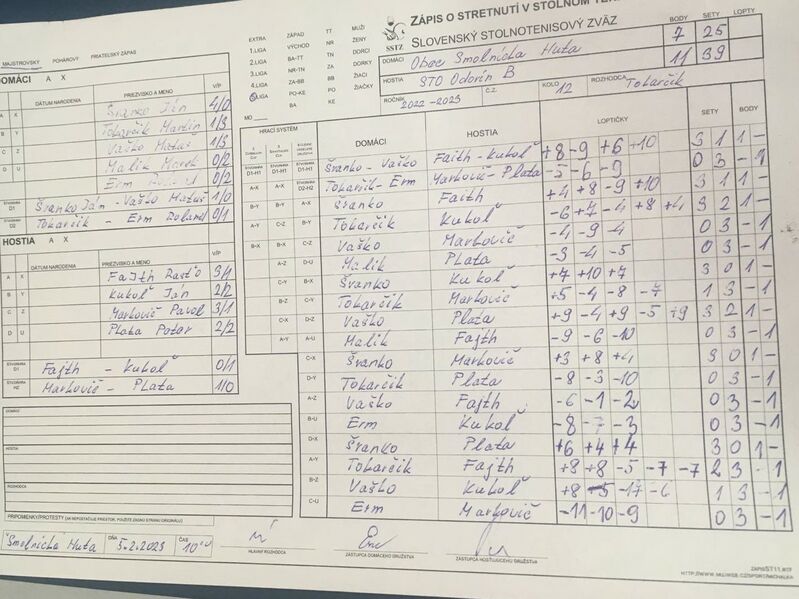 ZÁPIS O STRETNUTÍ V STOLNOM
SLOVENSKÝ STOLNOTENISOVÝ ZVÄZ
SSTZ
BODY SETY LOPTY
DOMÁCI Obec Smolnícka Huta 7 25
HOSTIA STO Odorín B 11 39
ROČNÍK 2022-2023 Č.Z. KOLO 12 ROZHODCA Tokarčík
MAJSTROVSKÝ POHÁROVÝ PRIATEĽSKÝ ZÁPAS
EXTRA ZÁPAD TT MUŽI
1.LIGA VÝCHOD NR ŽENY
2.LIGA BA-TT TN DORCI
3.LIGA NR-TN ZA DORKY
4.LIGA ZA-BB BB ŽIACI
5.LIGA PO-KE PO ŽIAČKY
BA KE
MO
DOMÁCI A X
DÁTUM NARODENIA PRIEZVISKO A MENO V/P
A X Švanko Ján 4/0
B Y Tokarčík Martin 1/3
C Z Vaško Matúš 1/3
D U Malik Marek 0/2
Erm Roland 0/2
ŠTVORHRA D1 Švanko Ján - Vaško Matúš 1/0
ŠTVORHRA D2 Tokarčík - Erm Roland 0/1
HOSTIA A X
DÁTUM NARODENIA PRIEZVISKO A MENO V/P
A X Fajth Rasťo 3/1
B Y Kukoľ Ján 2/2
C Z Markovič Pavol 3/1
D U Plata Peter 2/2
ŠTVORHRA D1 Fajth - Kukoľ 0/1
ŠTVORHRA H2 Markovič - Plata 1/0
HRACÍ SYSTÉM DOMÁCI HOSTIA LOPTIČKY SETY BODY
D1-H1 D1-H1 D1-H1 Švanko - Vaško Fajth - Kukoľ +8 -9 +6 +10 3 1 1 -
A-X A-X D2-H2 Tokarčík - Erm Markovič - Plata -5 -6 -9 0 3 - 1
B-Y B-Y A-X Švanko Fajth +4 +8 -9 +10 3 1 1 -
A-Y C-Z B-Y Tokarčík Kukoľ -6 +7 -4 +8 +4 3 2 1 -
B-X B-X C-Z Vaško Markovič -4 -9 -4 0 3 - 1
A-Z D-U Malik Plata -3 -4 -5 0 3 - 1
C-Y B-X Švanko Kukoľ +7 +10 +7 3 0 1 -
B-Z C-Y Tokarčík Markovič +5 -4 -8 -7 1 3 - 1
C-X D-Z Vaško Plata +9 -4 +9 -5 +9 3 2 1 -
A-Y A-U Malik Fajth -9 -6 -10 0 3 - 1
C-X Švanko Markovič +3 +8 +4 3 0 1 -
D-Y Tokarčík Plata -8 -3 -10 0 3 - 1
A-Z Vaško Fajth -6 -1 -2 0 3 - 1
B-U Erm Kukoľ -8 -7 -3 0 3 - 1
D-X Švanko Plata +6 +4 +4 3 0 1 -
A-Y Tokarčík Fajth +8 +8 -5 -7 -7 2 3 - 1
B-Z Vaško Kukoľ +8 -5 -17 -6 1 3 - 1
C-U Erm Markovič -11 -10 -9 0 3 - 1
DOMÁCI
HOSTIA
ROZHODCA
PRIPOMIENKY/PROTESTY (AK NEPOSTAČUJE PRIESTOR, POUŽITE ZADNÚ STRANU ORIGINÁLU)
V Smolnícka Huta DŇA 5.2.2023 ČAS 10
HLAVNÝ ROZHODCA
ZÁSTUPCA DOMÁCEHO DRUŽSTVA
ZÁSTUPCA HOSŤUJÚCEHO DRUŽSTVA
ZÁPISST11.RTF